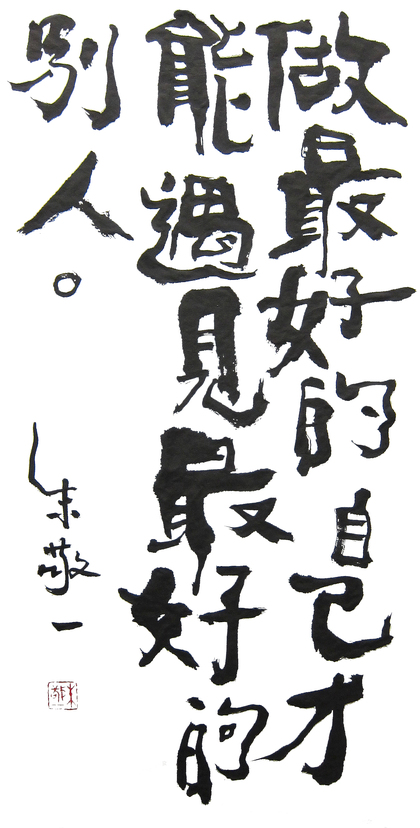 做最好的自己才
能遇見最好的
別人。
朱敬一